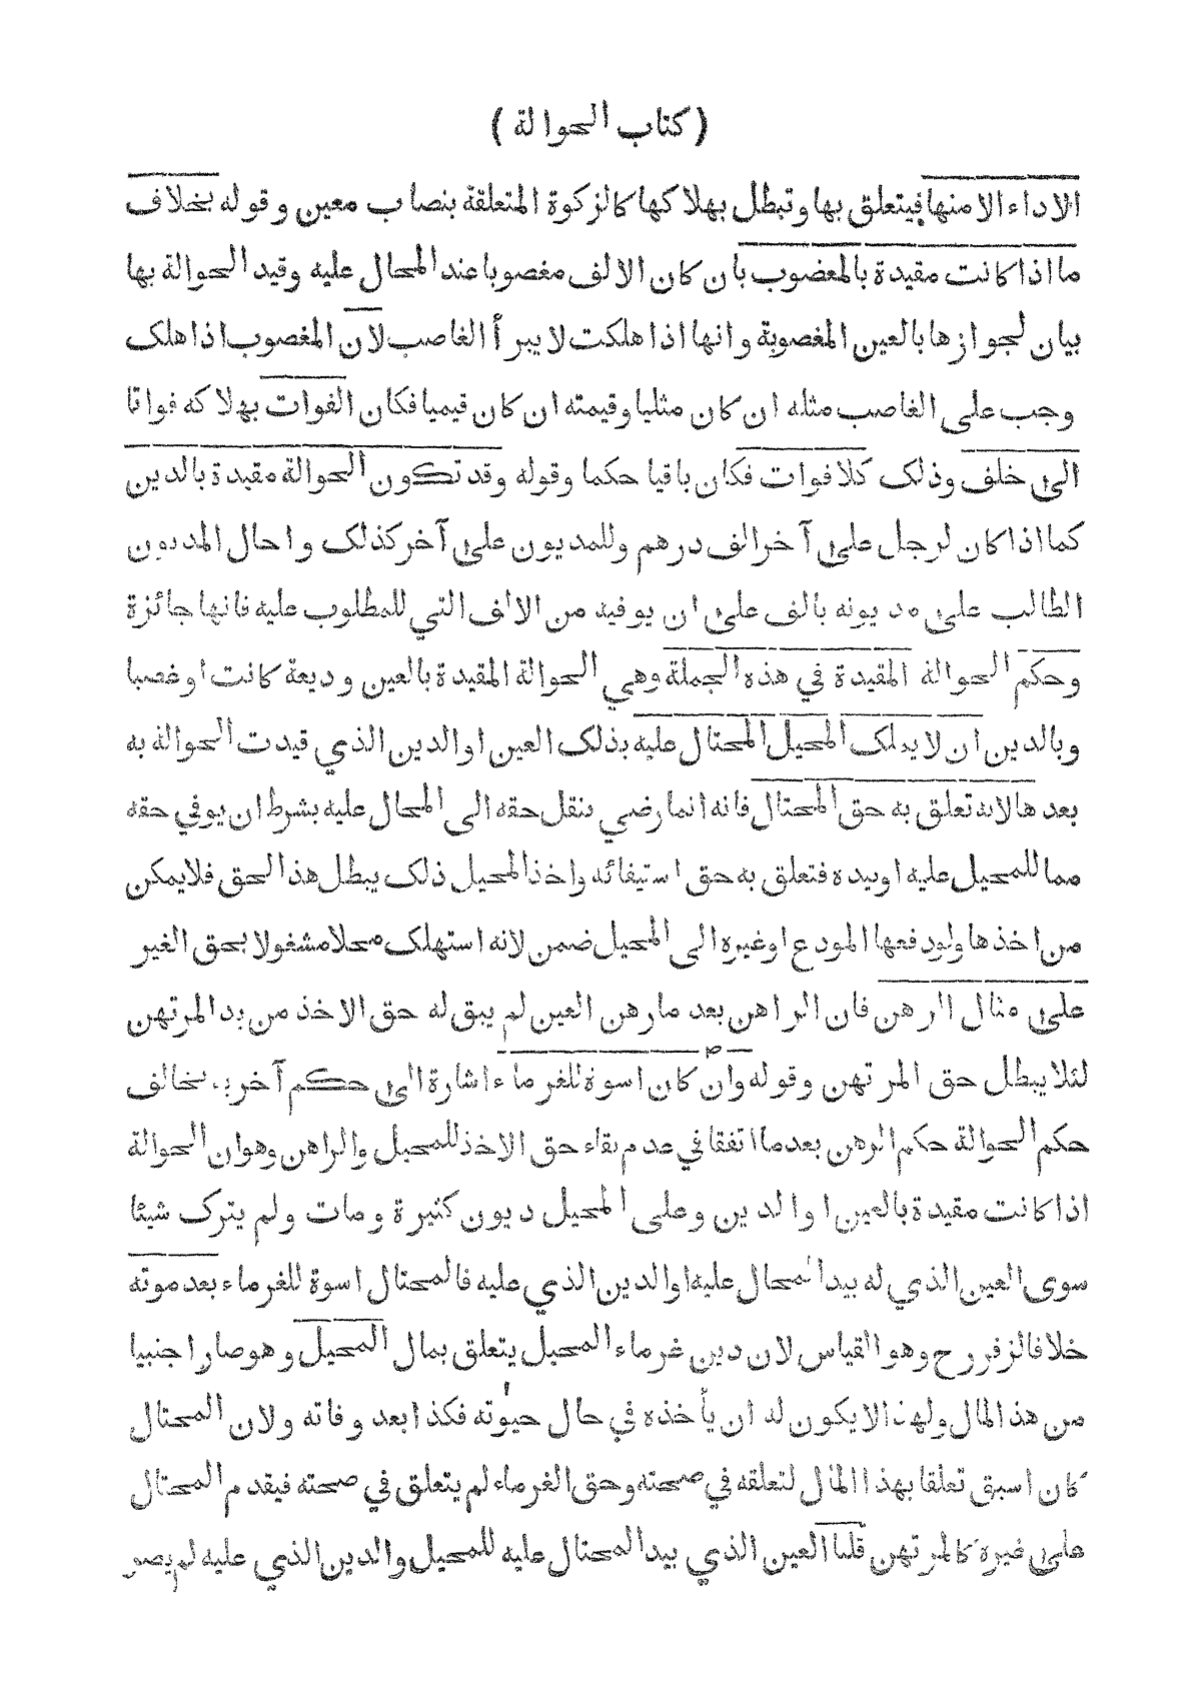 ( كتاب الحوالة )
الاداء الا منها فيتعلق بها وتبطل بهلاكها كالزكوة المتعلقة بنصاب معين وقوله بخلاف
ما اذا كانت مقيدة بالمغضوب بان كان الالف مغصوبا عند المحال عليه وقيد الحوالة بها
بيان لجوازها بالعين المغصوبة وانها اذا هلكت لا يبرأ الغاصب لان المغصوب اذا هلک
وجب على الغاصب مثله ان كان مثليا وقيمته ان كان قيميا فكان الفوات بهلاكه فواتا
الى خلف وذلک كلا فوات فكان باقيا حكما وقوله وقد تكون الحوالة مقيدة بالدين
كما اذا كان لرجل على آخر الف درهم وللمديون على آخر كذلک واحال المديون
الطالب على مديونه بالف على ان يوفيه من الالف التي للمطلوب عليه فانها جائزة
وحكم الحوالة المقيدة في هذه الجملة وهي الحوالة المقيدة بالعين وديعة كانت او غصبا
وبالدين ان لا يملک المحيل المحتال عليه بذلک العين او الدين الذي قيدت الحوالة به
بعدها لانه تعلق به حق المحتال فانه انما رضي بنقل حقه الى المحال عليه بشرط ان يوفي حقه
مما للمحيل عليه او بيده فتعلق به حق استيفائه واخذ المحيل ذلک يبطل هذا الحق فلا يمكن
من اخذها ولو دفعها المودع او غيره الى المحيل ضمن لانه استهلک محلا مشغولا بحق الغير
على مثال الرهن فان الراهن بعد ما رهن العين لم يبق له حق الاخذ من يد المرتهن
لئلا يبطل حق المرتهن وقوله وان كان اسوة للغرماء اشارة الى حكم آخر يخالف
حكم الحوالة حكم الرهن بعد ما اتفقا في عدم بقاء حق الاخذ للمحيل والراهن وهو ان الحوالة
اذا كانت مقيدة بالعين او الدين وعلى المحيل ديون كثيرة ومات ولم يترک شيئا
سوى العين الذي له بيد المحال عليه او الدين الذي عليه فالمحتال اسوة للغرماء بعد موته
خلافا لزفر رح وهو القياس لان دين غرماء المحيل يتعلق بمال المحيل وهو صار اجنبيا
من هذ المال ولهذا لا يكون له ان يأخذه في حال حيوته فكذا بعد وفاته ولان المحتال
كان اسبق تعلقا بهذا المال لتعلقه في صحته وحق الغرماء لم يتعلق في صحته فيقدم المحتال
على غيره كالمرتهن قلنا العين الذي بيد المحتال عليه للمحيل والدين الذي عليه لم يصر